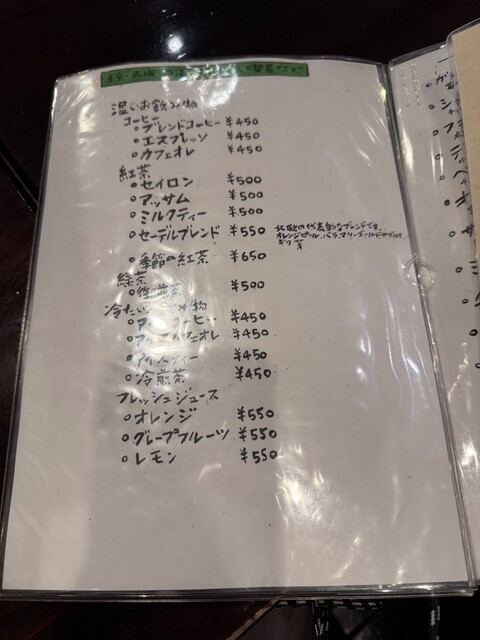 喫茶メニュー
温いお飲み物
コーヒー
○ブレンドコーヒー ¥450
○エスプレッソ ¥450
○カフェオレ ¥450
紅茶
○セイロン ¥500
○アッサム ¥500
○ミルクティー ¥500
○セーデルブレンド ¥550 北欧の代表的なブレンドです。
オレンジピール、バラ、マリーゴールド
○季節の紅茶 ¥650
緑茶
煎茶 ¥500
冷たい 物
○アイスコーヒー ¥450
○アイスカフェオレ ¥450
○アイスティー ¥450
○冷煎茶 ¥450
フレッシュジュース
○オレンジ ¥550
○グレープフルーツ ¥550
○レモン ¥550